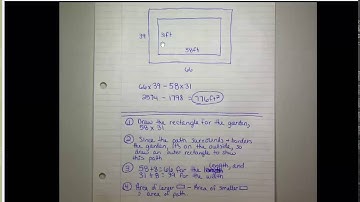 39
31ft
58ft
66
66x39 - 58x31
2574 - 1798 = 776ft2
1 Draw the rectangle for the garden,
58 x 31
2 Since the path surrounds + borders
the garden, it's on the outside, so
draw an outer rectangle to show
this path
3 58+8=66 for the length, and
31+8=39 for the width
4 Area of larger - Area of smaller
= area of path